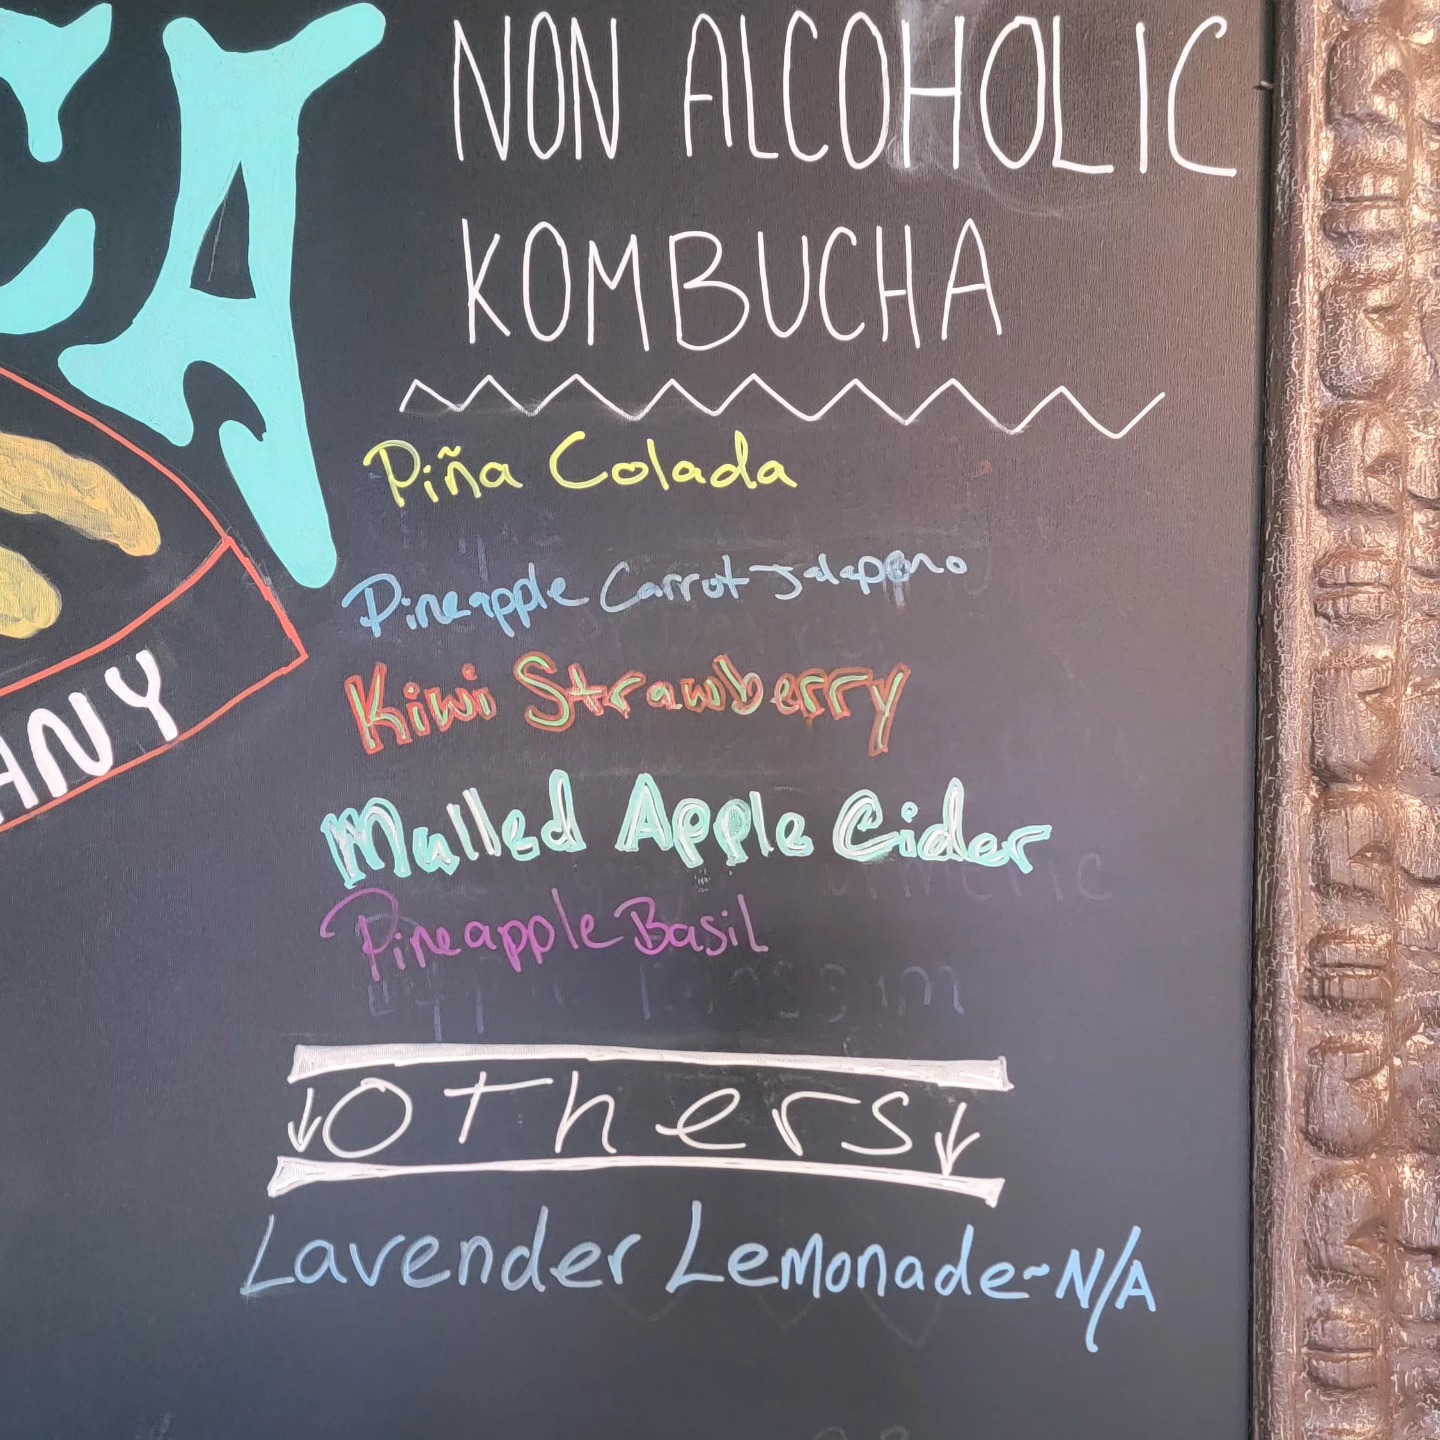 CA
ANY
NON ALCOHOLIC
KOMBUCHA
Piña Colada
Pineapple Carrot Jalapeno
Kiwi Strawberry
Mulled Apple Cider
Pineapple Basil
Others
Lavender Lemonade-N/A